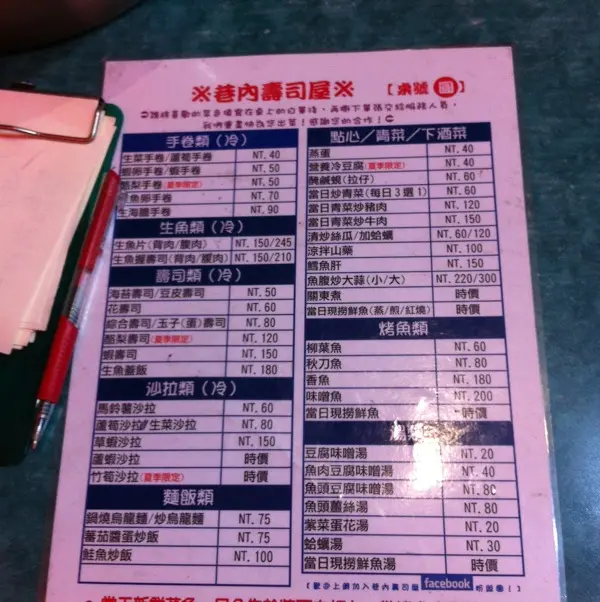 ※巷內壽司屋※
【桌號 圓】
手卷類（冷）
生菜手卷/蘆筍手卷 NT. 40
蝦卵手卷/蝦手卷 NT. 50
酪梨手卷(夏季限定) NT. 50
鮭魚卵手卷 NT. 70
生海膽手卷 NT. 90
生魚類（冷）
生魚片(背肉/腹肉) NT. 150/245
生魚握壽司(背肉/腹肉) NT. 150/210
壽司類（冷）
海苔壽司/豆皮壽司 NT. 50
花壽司 NT. 60
綜合壽司/玉子(蛋)壽司 NT. 80
酪梨壽司(夏季限定) NT. 120
蝦壽司 NT. 150
生魚蓋飯 NT. 180
沙拉類（冷）
馬鈴薯沙拉 NT. 60
蘆筍沙拉/生菜沙拉 NT. 80
草蝦沙拉 NT. 150
蘆蝦沙拉 時價
竹筍沙拉(夏季限定) 時價
麵飯類
鍋燒烏龍麵/炒烏龍麵 NT. 75
蕃茄醬蛋炒飯 NT. 75
鮭魚炒飯 NT. 100
點心／青菜／下酒菜
蒸蛋 NT. 40
營養冷豆腐(夏季限定) NT. 40
醃鹹蜆(拉仔) NT. 60
當日炒青菜(每日3選1) NT. 60
當日青菜炒豬肉 NT. 120
當日青菜炒牛肉 NT. 150
清炒絲瓜/加蛤蠣 NT. 60/120
涼拌山藥 NT. 100
鱈魚肝 NT. 150
魚腹炒大蒜(小/大) NT. 220/300
關東煮 時價
當日現撈鮮魚(蒸/煎/紅燒) 時價
烤魚類
柳葉魚 NT. 60
秋刀魚 NT. 80
香魚 NT. 180
味噌魚 NT. 200
當日現撈鮮魚 時價
湯類
豆腐味噌湯 NT. 20
魚肉豆腐味噌湯 NT. 40
魚頭豆腐味噌湯 NT. 80
魚頭薑絲湯 NT. 80
紫菜蛋花湯 NT. 20
蛤蠣湯 NT. 30
當日現撈鮮魚湯 時價
【歡迎上網加入巷內壽司屋 facebook 粉絲團！】